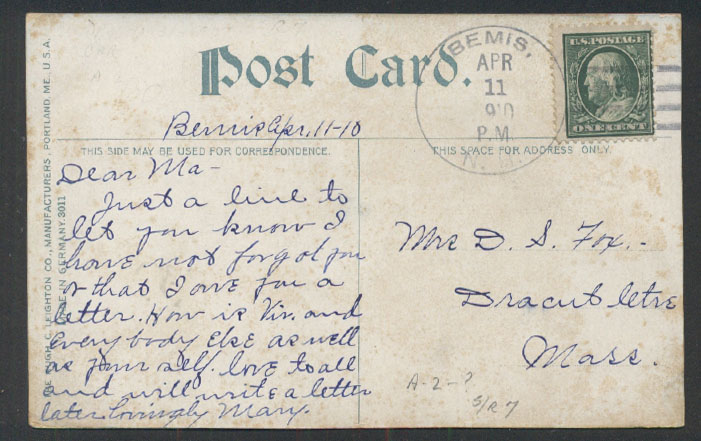 Post Card.
BEMIS,
APR
11
910
P.M.
N.H.
U.S. POSTAGE
ONE CENT
Bemis Apr. 11-10
THIS SIDE MAY BE USED FOR CORRESPONDENCE.
THIS SPACE FOR ADDRESS ONLY.
Dear Ma-
Just a line to
let you know I
have not forgot you
& that I owe you a
letter. How is Viv. and
Everybody Else as well
as your self. love to all
and will write a letter
later. Lovingly Mary.
Mrs D. S. Fox.
Dracut Ctre
Mass.
A-2-?
S/R 7
HUGH C. LEIGHTON CO., MANUFACTURERS, PORTLAND, ME. U.S.A.
MADE IN GERMANY. 3011